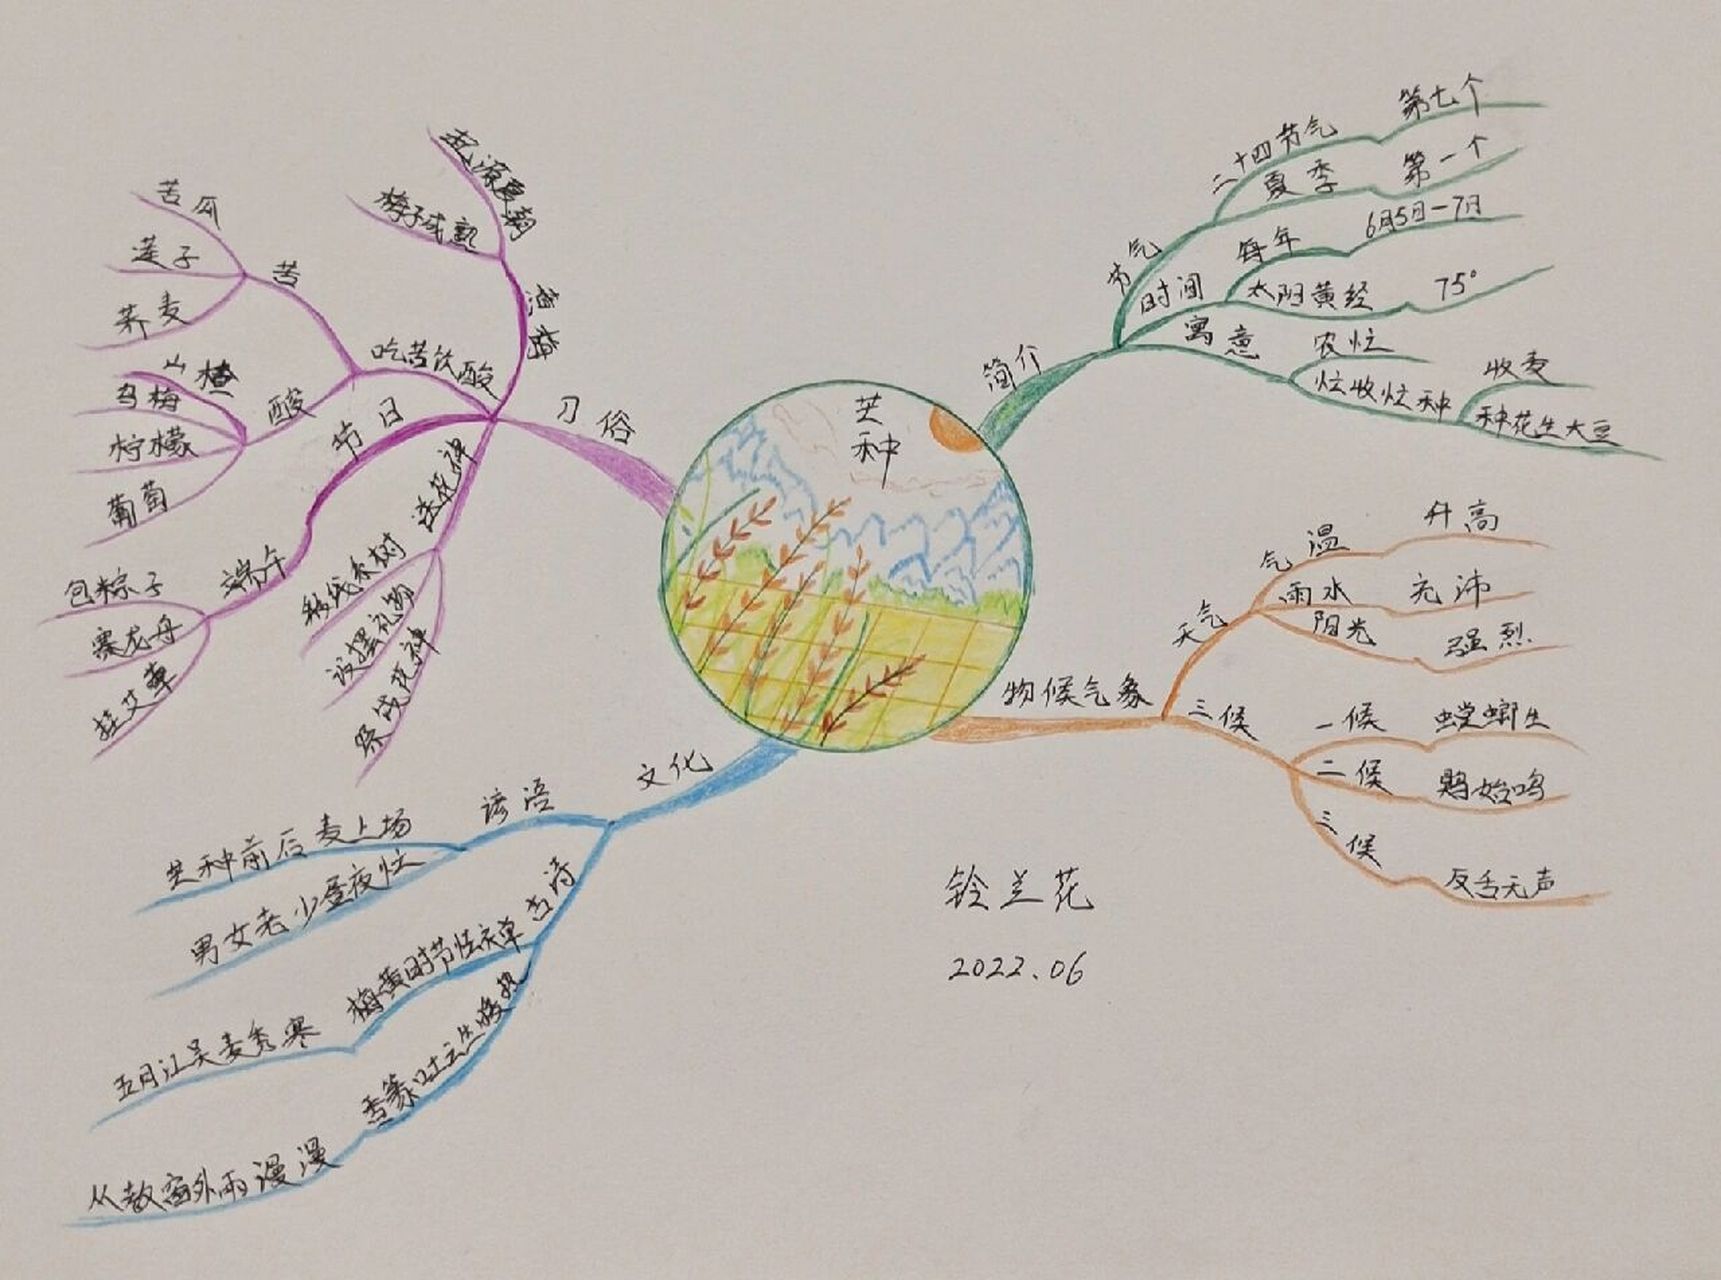 芒种
简介
节气
二十四节气
第七个
夏季
第一个
时间
每年
6月5日-7日
太阳黄经
75°
寓意
农忙
忙收忙种
收麦
种花生大豆
物候气象
天气
气温
升高
雨水
充沛
阳光
强烈
三候
一候
螳螂生
二候
鵙始鸣
三候
反舌无声
文化
谚语
芒种前后麦上场
男女老少昼夜忙
古诗
梅黄时节怯衣单
五月江吴麦秀寒
香篆吐云生暖热
从教窗外雨漫漫
习俗
煮梅
起源夏朝
梅子成熟
吃苦饮酸
苦
苦瓜
莲子
荞麦
酸
山楂
乌梅
柠檬
葡萄
节日
端午
包粽子
赛龙舟
挂艾草
送花神
彩线系树
设摆礼物
祭饯花神
铃兰花
2022.06